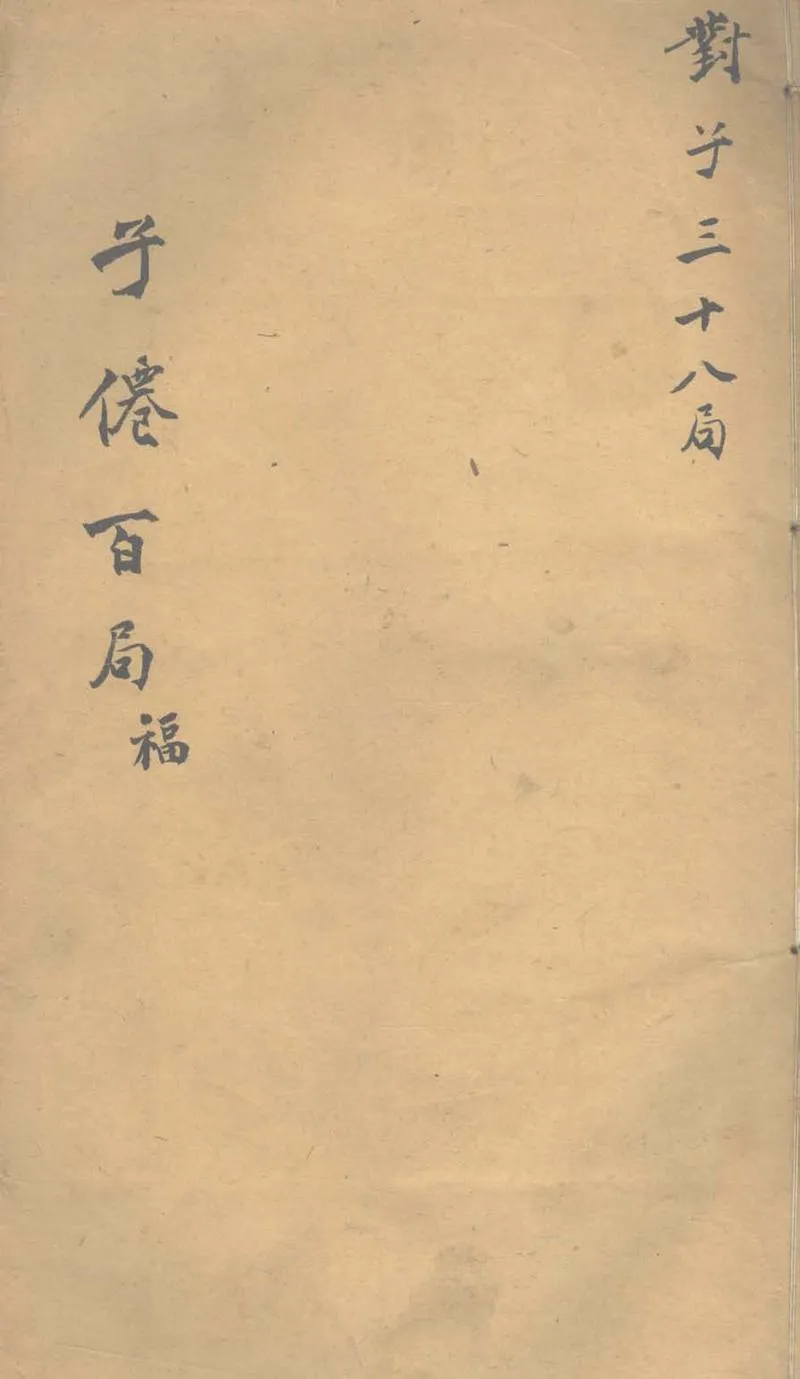 對子三十八局
子僊百局 福